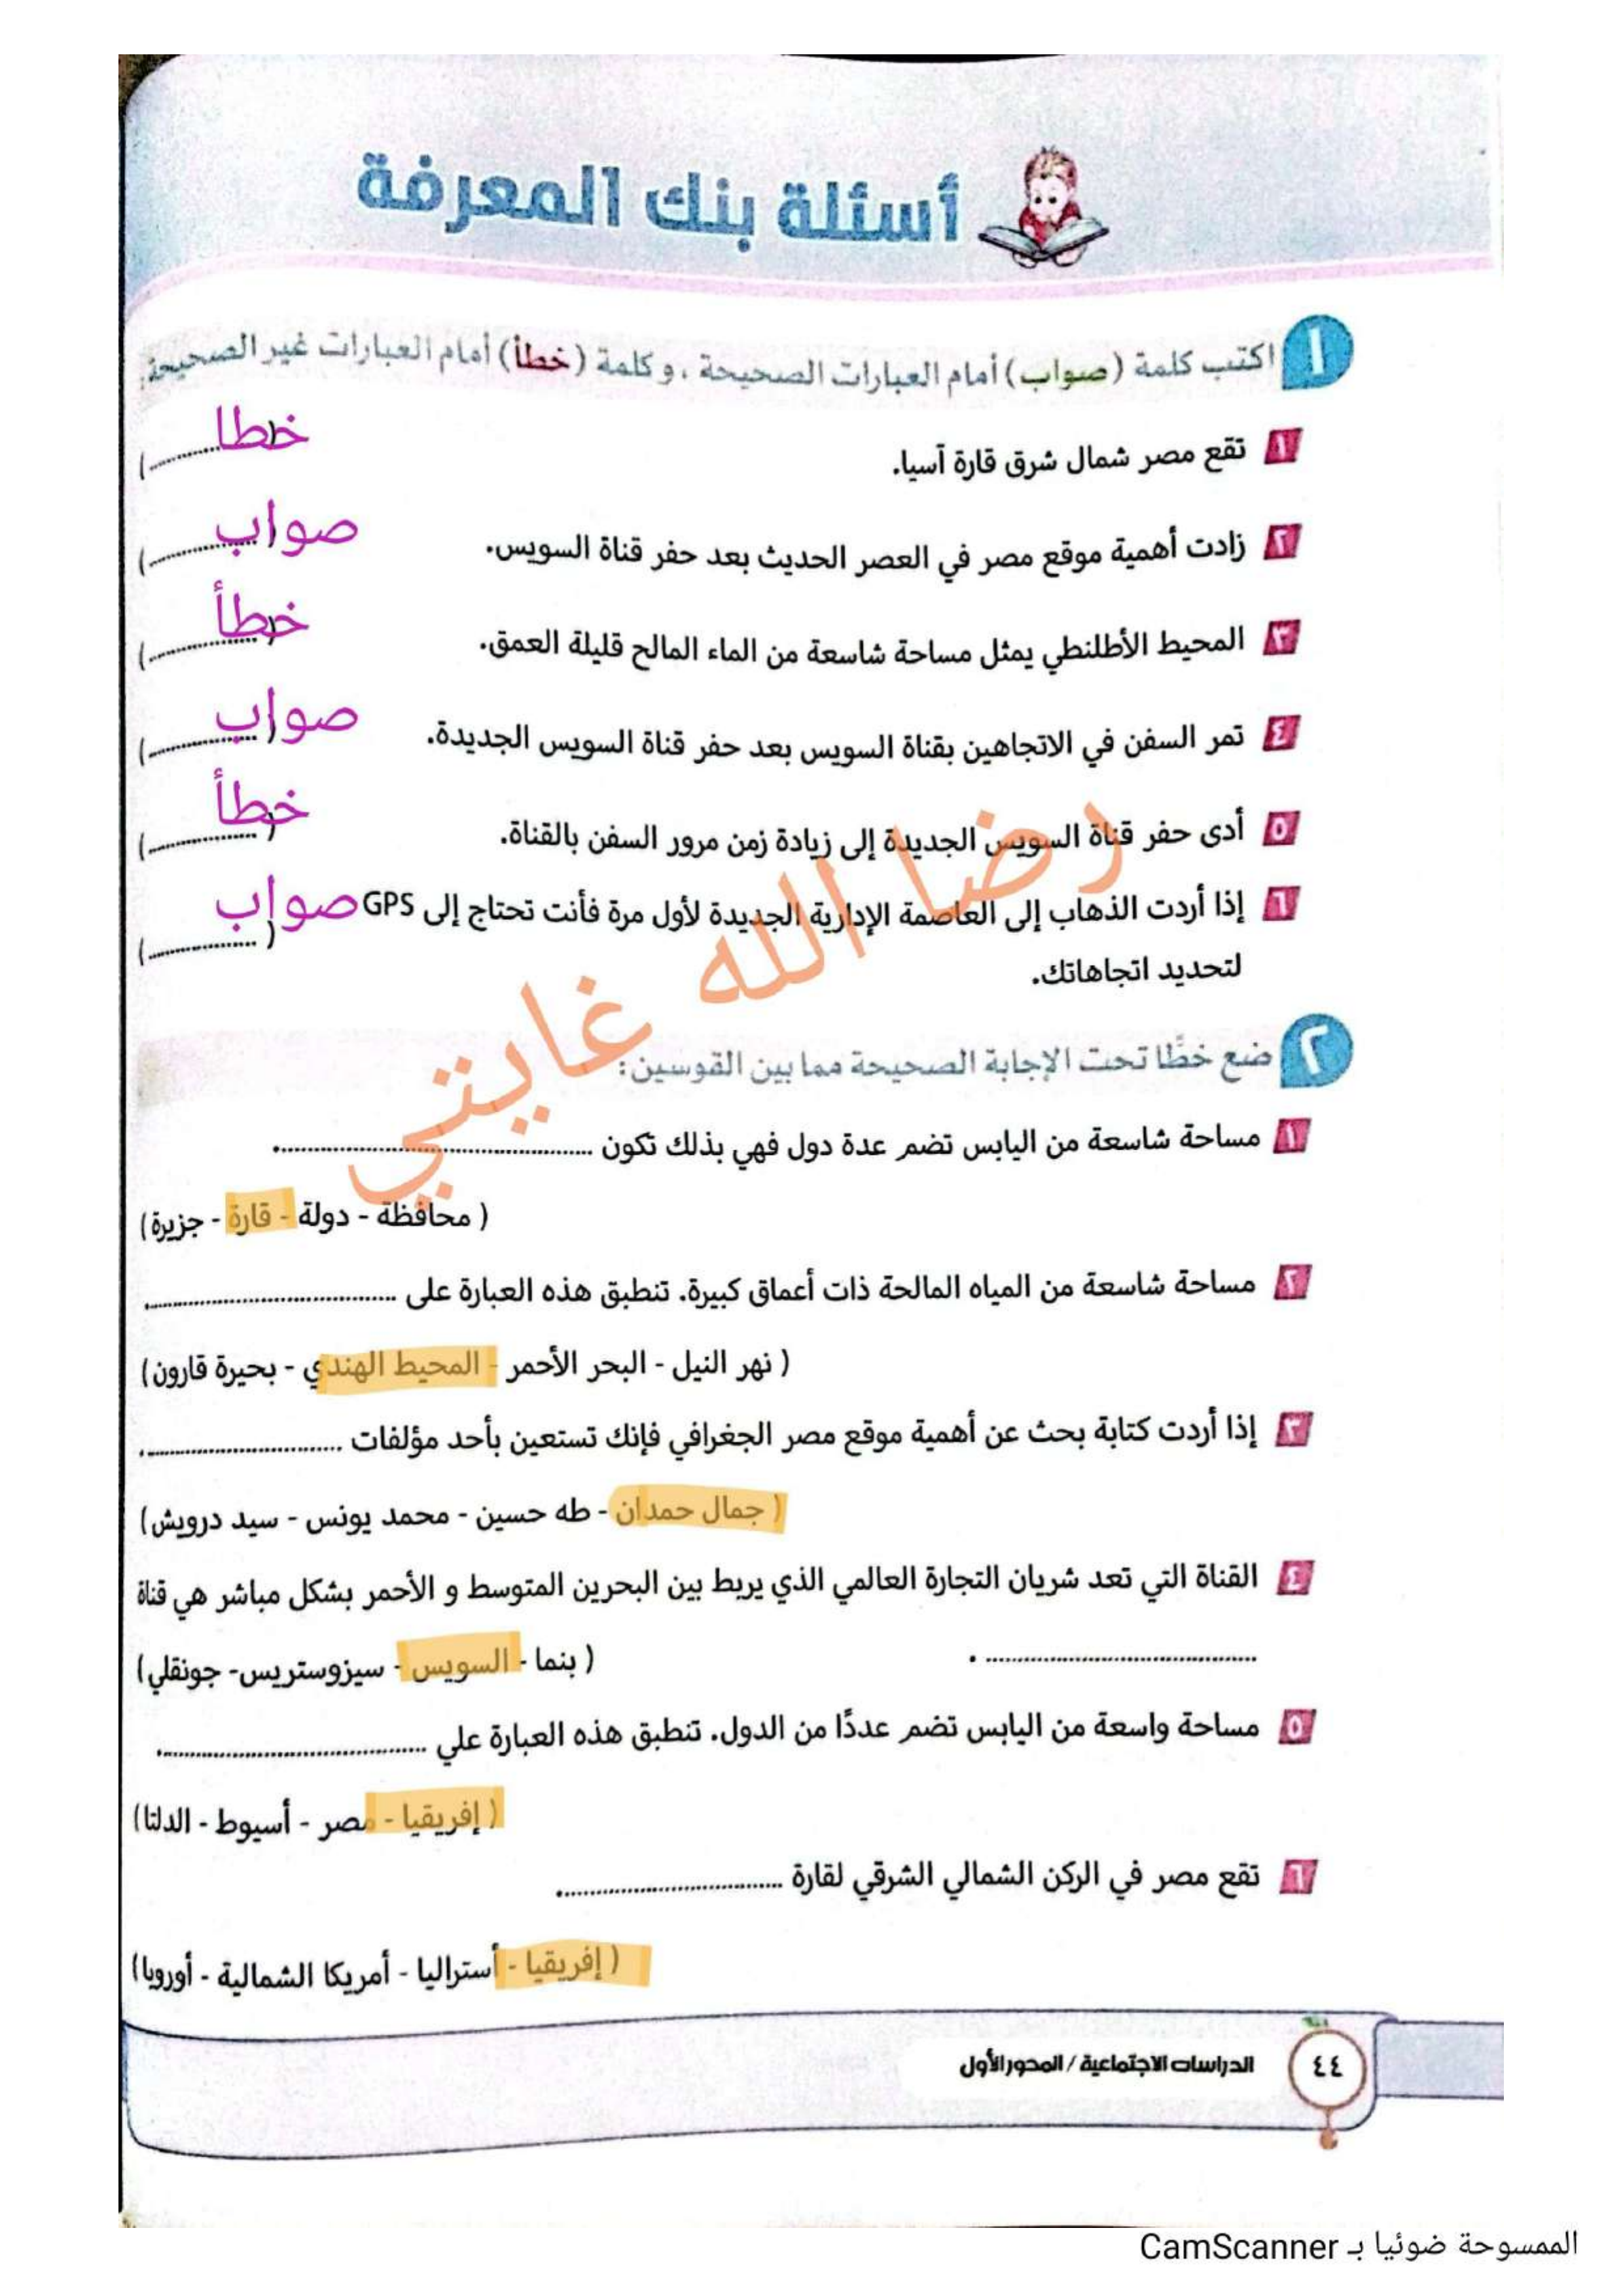 أسئلة بنك المعرفة
١ اكتب كلمة (صواب) أمام العبارات الصحيحة ، و كلمة (خطأ) أمام العبارات غير الصحيحة:
١ تقع مصر شمال شرق قارة آسيا. (..........) خطا
٢ زادت أهمية موقع مصر في العصر الحديث بعد حفر قناة السويس. (..........) صواب
٣ المحيط الأطلنطي يمثل مساحة شاسعة من الماء المالح قليلة العمق. (..........) خطأ
٤ تمر السفن في الاتجاهين بقناة السويس بعد حفر قناة السويس الجديدة. (..........) صواب
٥ أدى حفر قناة السويس الجديدة إلى زيادة زمن مرور السفن بالقناة. (..........) خطأ
٦ إذا أردت الذهاب إلى العاصمة الإدارية الجديدة لأول مرة فأنت تحتاج إلى GPS (..........) صواب
لتحديد اتجاهاتك.
رضا الله غايتي
٢ ضع خطًا تحت الإجابة الصحيحة مما بين القوسين:
١ مساحة شاسعة من اليابس تضم عدة دول فهي بذلك تكون ..........
( محافظة - دولة - قارة - جزيرة)
٢ مساحة شاسعة من المياه المالحة ذات أعماق كبيرة. تنطبق هذه العبارة على ..........
( نهر النيل - البحر الأحمر - المحيط الهندي - بحيرة قارون)
٣ إذا أردت كتابة بحث عن أهمية موقع مصر الجغرافي فإنك تستعين بأحد مؤلفات ..........
( جمال حمدان - طه حسين - محمد يونس - سيد درويش)
٤ القناة التي تعد شريان التجارة العالمي الذي يربط بين البحرين المتوسط و الأحمر بشكل مباشر هي قناة
.......... . ( بنما - السويس - سيزوستريس- جونقلي)
٥ مساحة واسعة من اليابس تضم عددًا من الدول. تنطبق هذه العبارة علي ..........
( إفريقيا - مصر - أسيوط - الدلتا)
٦ تقع مصر في الركن الشمالي الشرقي لقارة ..........
( إفريقيا - أستراليا - أمريكا الشمالية - أوروبا)
٤٤ الدراسات الاجتماعية / المحور الأول
الممسوحة ضوئيا بـ CamScanner